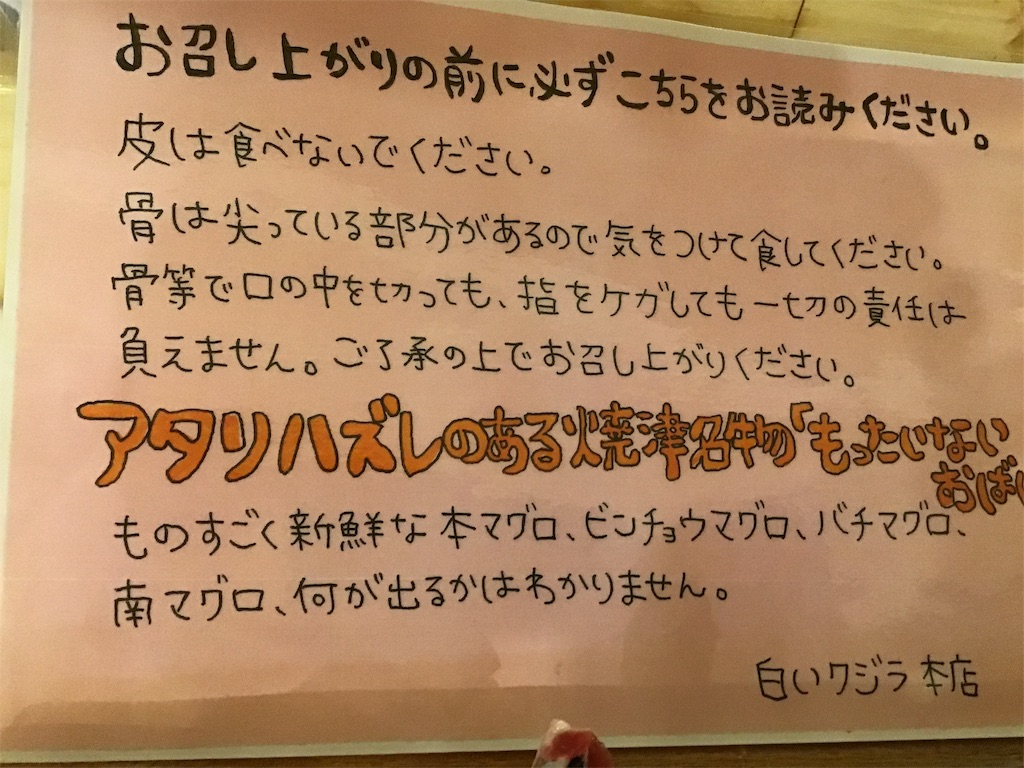 お召し上がりの前に必ずこちらをお読みください。
皮は食べないでください。
骨は尖っている部分があるので気をつけて食してください。
骨等で口の中を切っても、指をケガしても一切の責任は
負えません。ご了承の上でお召し上がりください。
アタリハズレのある焼津名物「もったいない
おば
ものすごく新鮮な本マグロ、ビンチョウマグロ、バチマグロ、
南マグロ、何が出るかはわかりません。
白いクジラ 本店